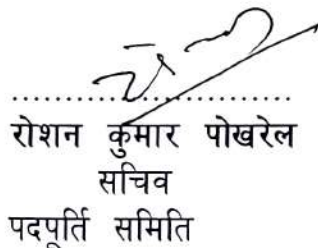 ..............................
रोशन कुमार पोखरेल
सचिव
पदपूर्ति समिति